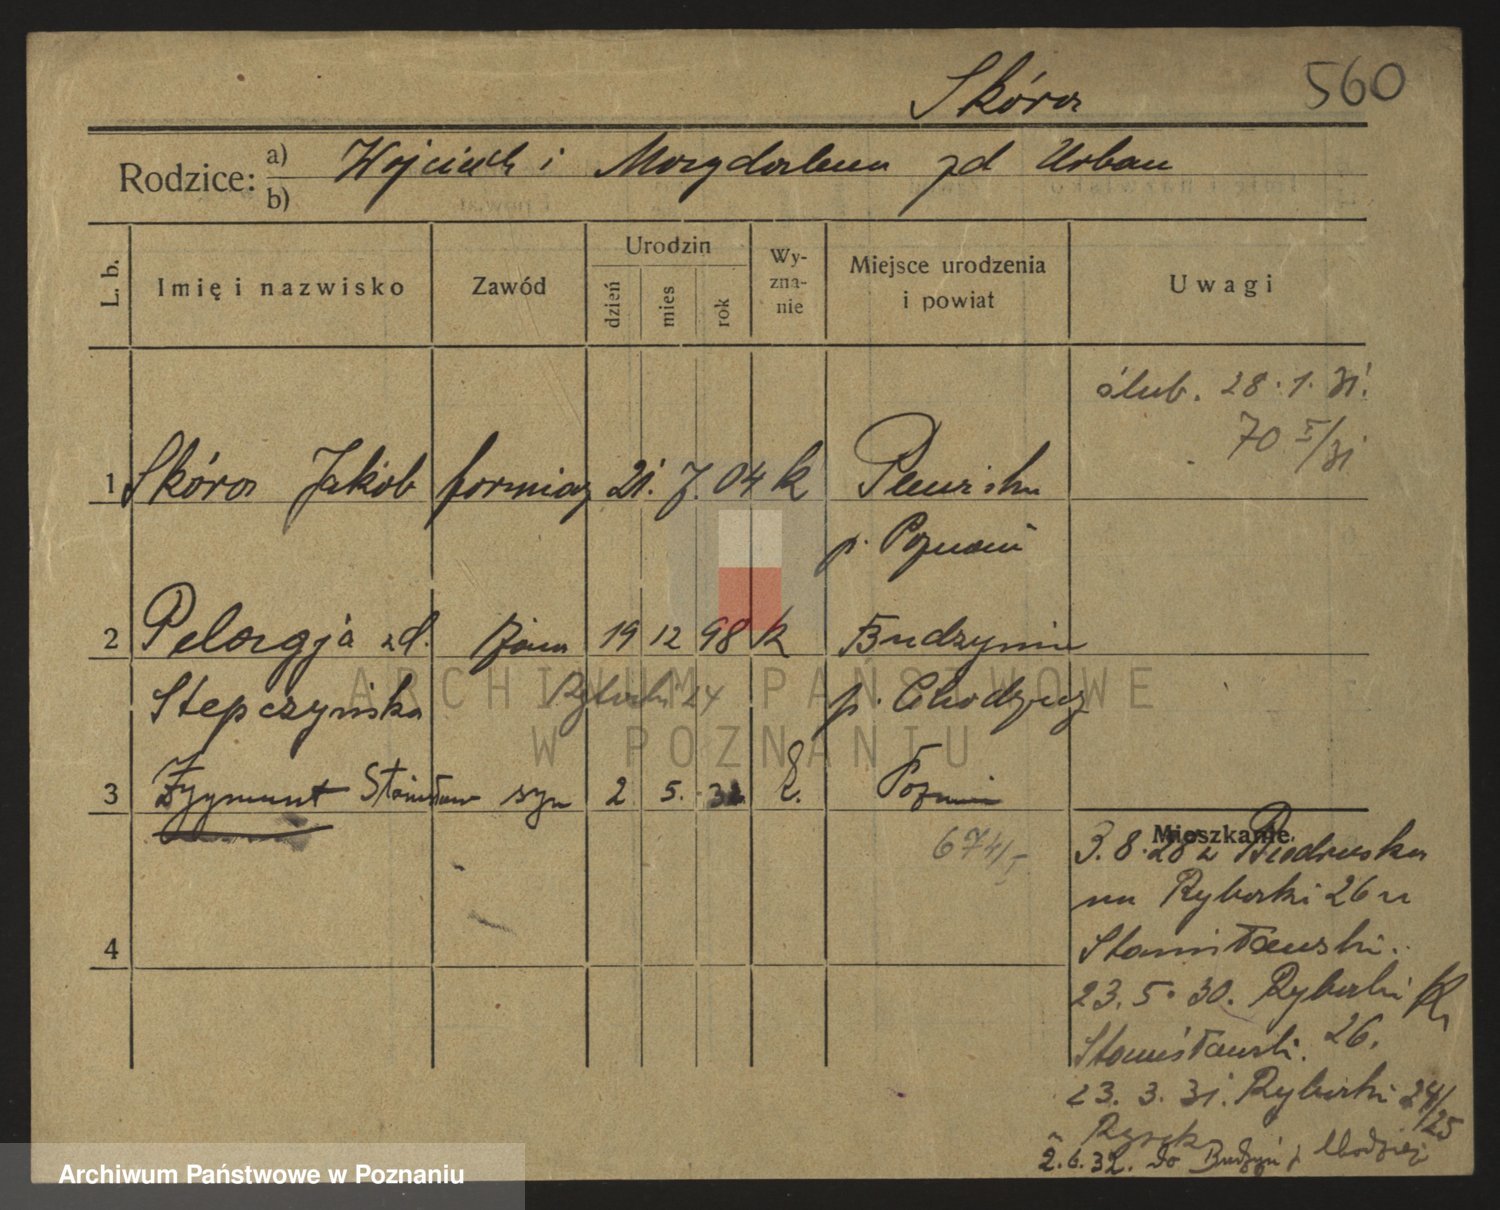 Skóra 560
Rodzice: a) Wojciech i Magdalena zd Urban
b)
L. b. Imię i nazwisko Zawód Urodzin dzień mies rok Wy-zna-nie Miejsce urodzenia i powiat Uwagi
ślub. 28.1.31.
70 I/31
1 Skóra Jakób forniarz 21. 7. 04 k Plewiska
p. Poznań
2 Pelagja zd. żona 19 12 98 k Budzynin
Stepczyńska Rybaki 24 p. Chodzież
3 Zygmunt Stanisław syn 2 5. 32 k. Poznań
674/I
4
Mieszkanie
3.8.28 z Biedruska
na Rybaki 26 u
Stanisławski.
23.5.30. Rybaki
Stanisławski. 26.
23.3.31. Rybaki 24/25
2.6.32. do Budzyń p Chodzież
ARCHIWUM PAŃSTWOWE
W POZNANIU
Archiwum Państwowe w Poznaniu